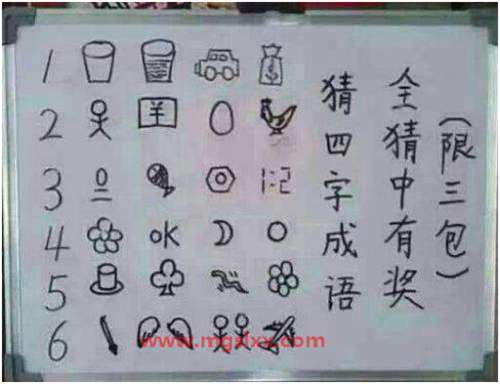 1
2 羊
3 1:2
4 OK
5
6
猜四字成语
全猜中有奖
(限三包)
www.mgslxx.com